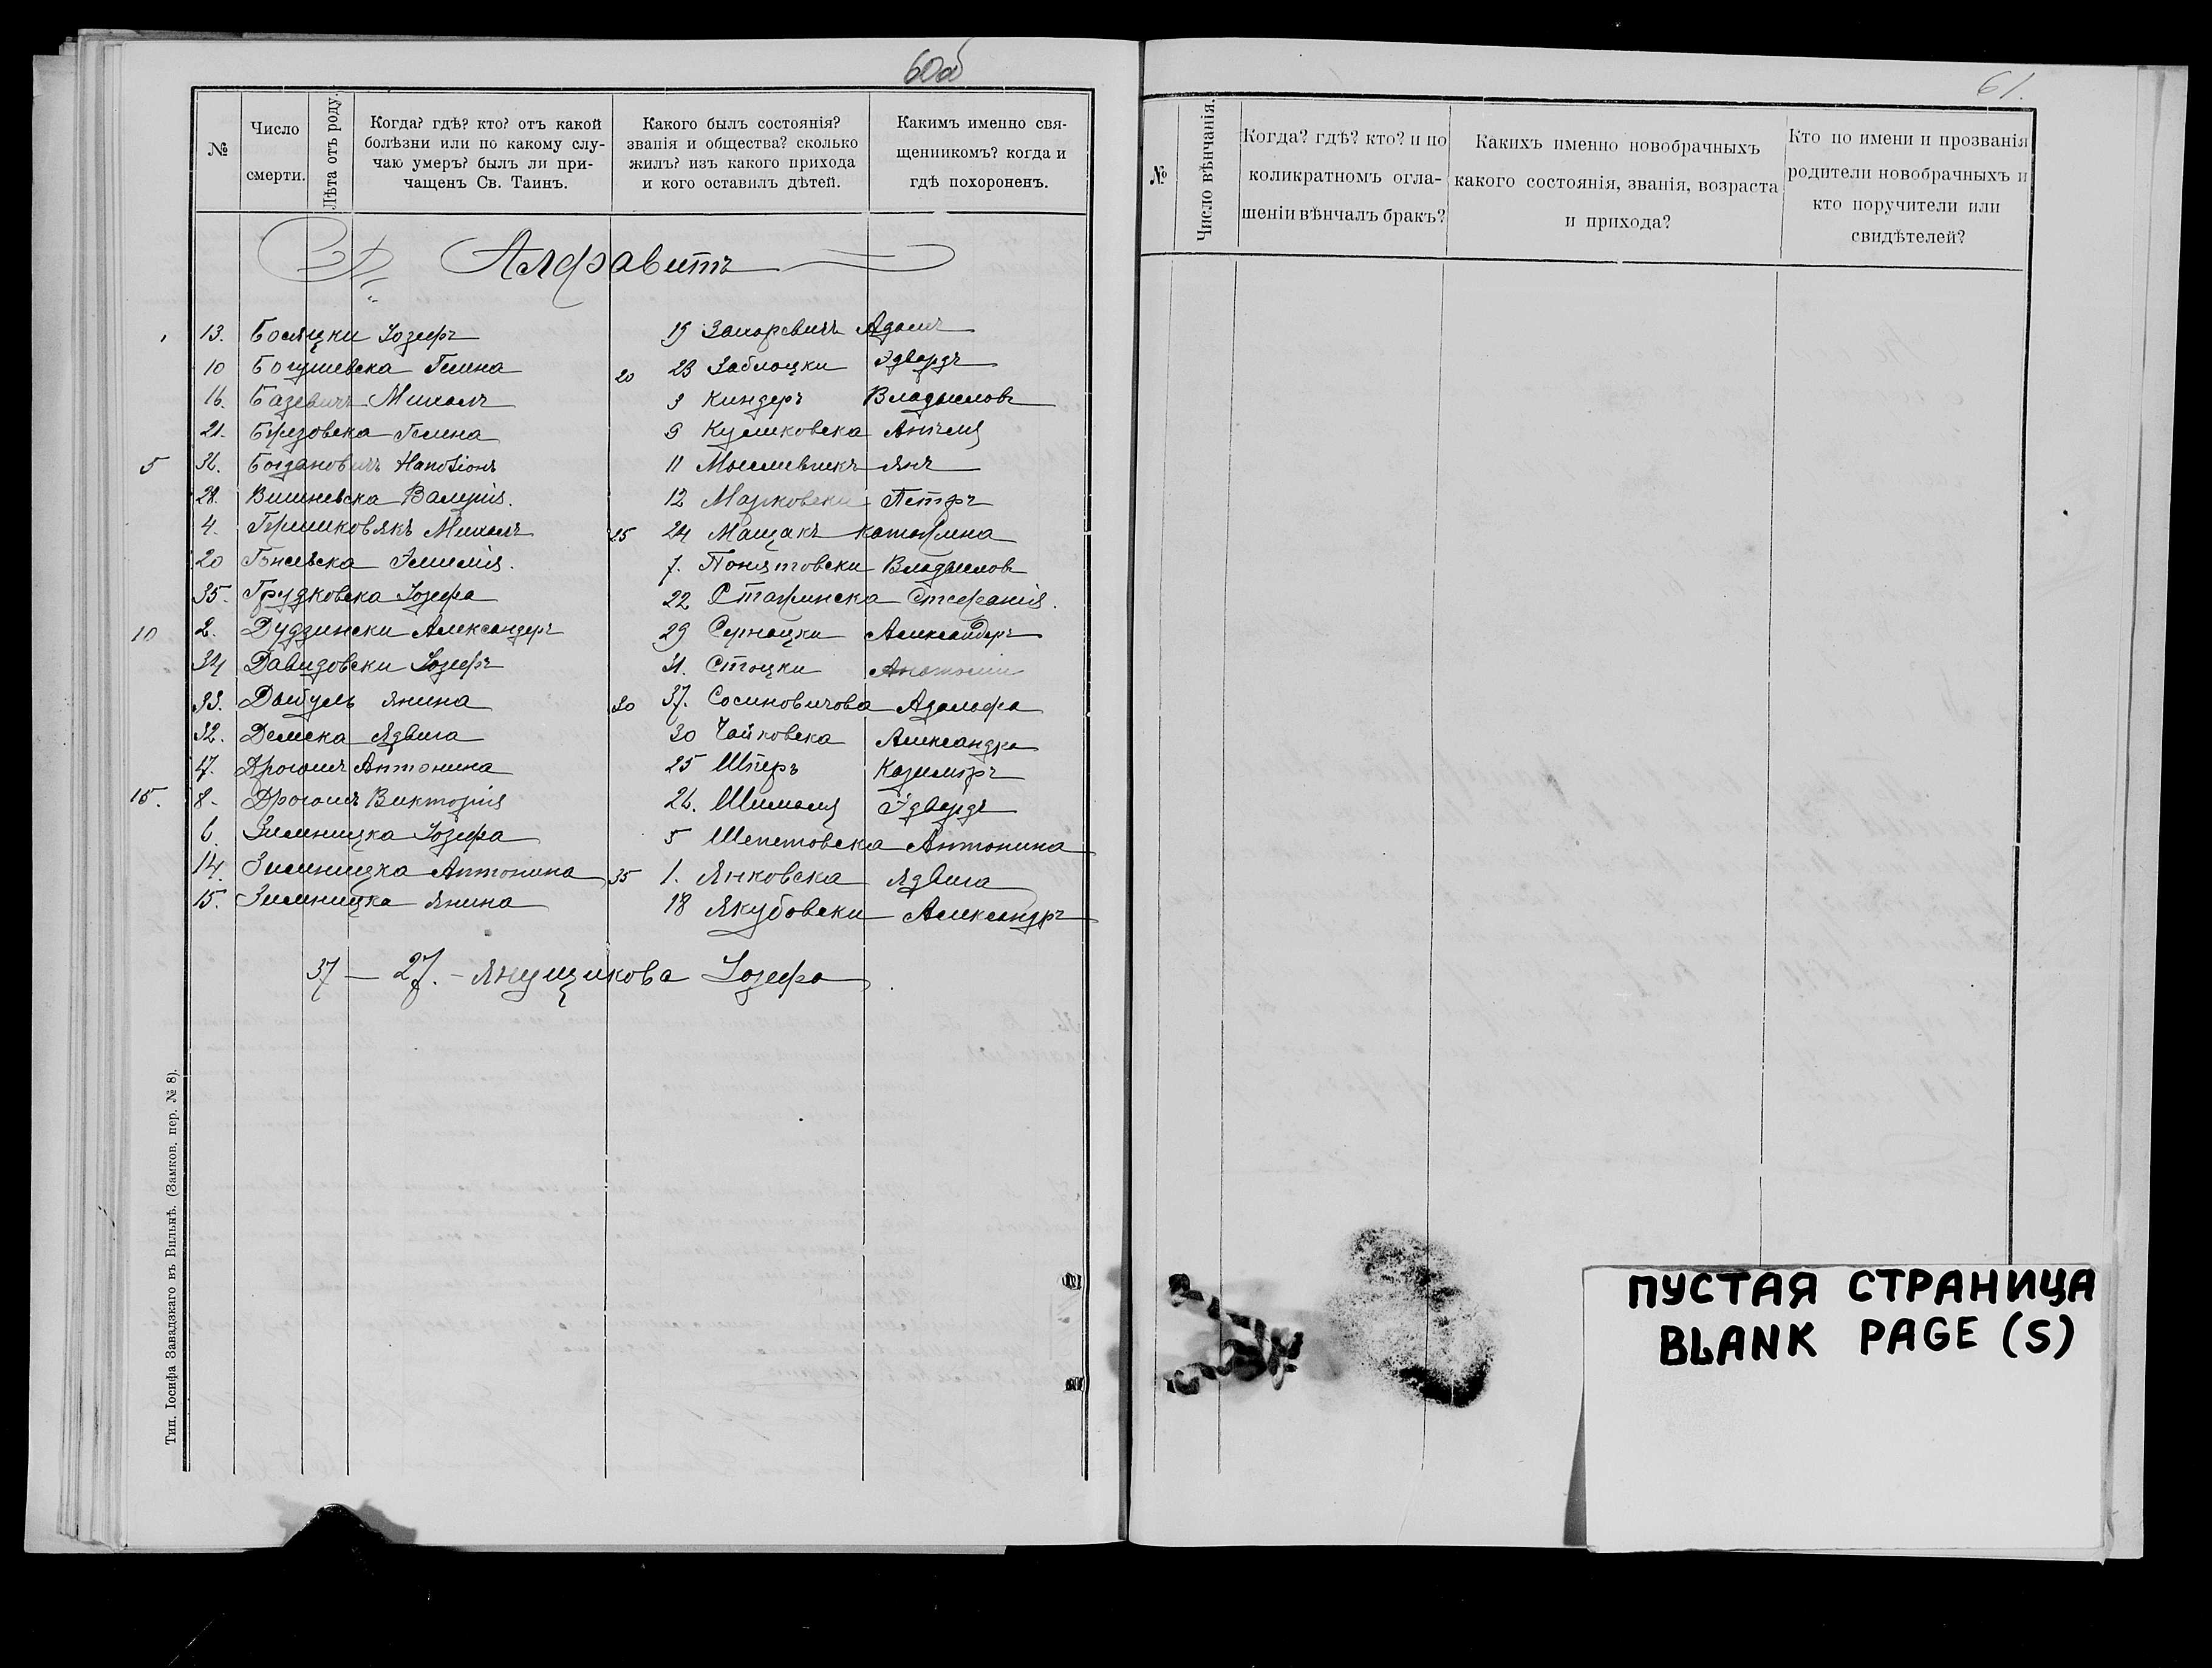 60об
№
Число смерти.
Лѣта отъ роду.
Когда? гдѣ? кто? отъ какой
болѣзни или по какому слу-
чаю умеръ? былъ ли при-
чащенъ Св. Таинъ.
Какого былъ состоянія?
званія и общества? сколько
жилъ? изъ какого прихода
и кого оставилъ дѣтей.
Какимъ именно свя-
щенникомъ? когда и
гдѣ похороненъ.
Алфавитъ
13. Іозефъ
10 Богушевска Гелина
16. Базевичъ Михалъ
21. Бжезовска Гелина
5 36. Богдановичъ
28. Вишневска Валерія.
4. Михалъ
20 Эмилія.
35. Грудковска Іозефа
10 2. Дудзински Александеръ
34 Давидовски Іозефъ
33. Янина
32. Ядвига
17. Антонина
15. 8. Викторія
6. Зимницка Іозефа
14. Зимницка Антонина
15. Зимницка Янина
19 Адамъ
20 23 Заблоцки Эдвардъ
3 Киндеръ Владыславъ
9 Куликовска Анѣля
11 Янъ
12 Марковски Петръ
25 24 Мащакъ Катажина
7. Понятовски Владыславъ
22 Стефанія.
29 Александеръ
31. Стоцки
30 37. Сосиновичова Адольфа
30 Чайковска Александра
25 Казиміръ
26. Эдвардъ
5 Шепетовска Антонина
35 1. Янковска Ядвига
18 Якубовски Александръ
37 — 27. — Янущикова Іозефа
Тип. Іосифа Завадзкаго въ Вильнѣ. (Замков. пер. № 8).
61.
№
Число вѣнчанія.
Когда? гдѣ? кто? и по
коликратномъ огла-
шеніи вѣнчалъ бракъ?
Какихъ именно новобрачныхъ
какого состоянія, званія, возраста
и прихода?
Кто по имени и прозванія
родители новобрачныхъ и
кто поручители или
свидѣтелей?
ПУСТАЯ СТРАНИЦА
BLANK PAGE (S)